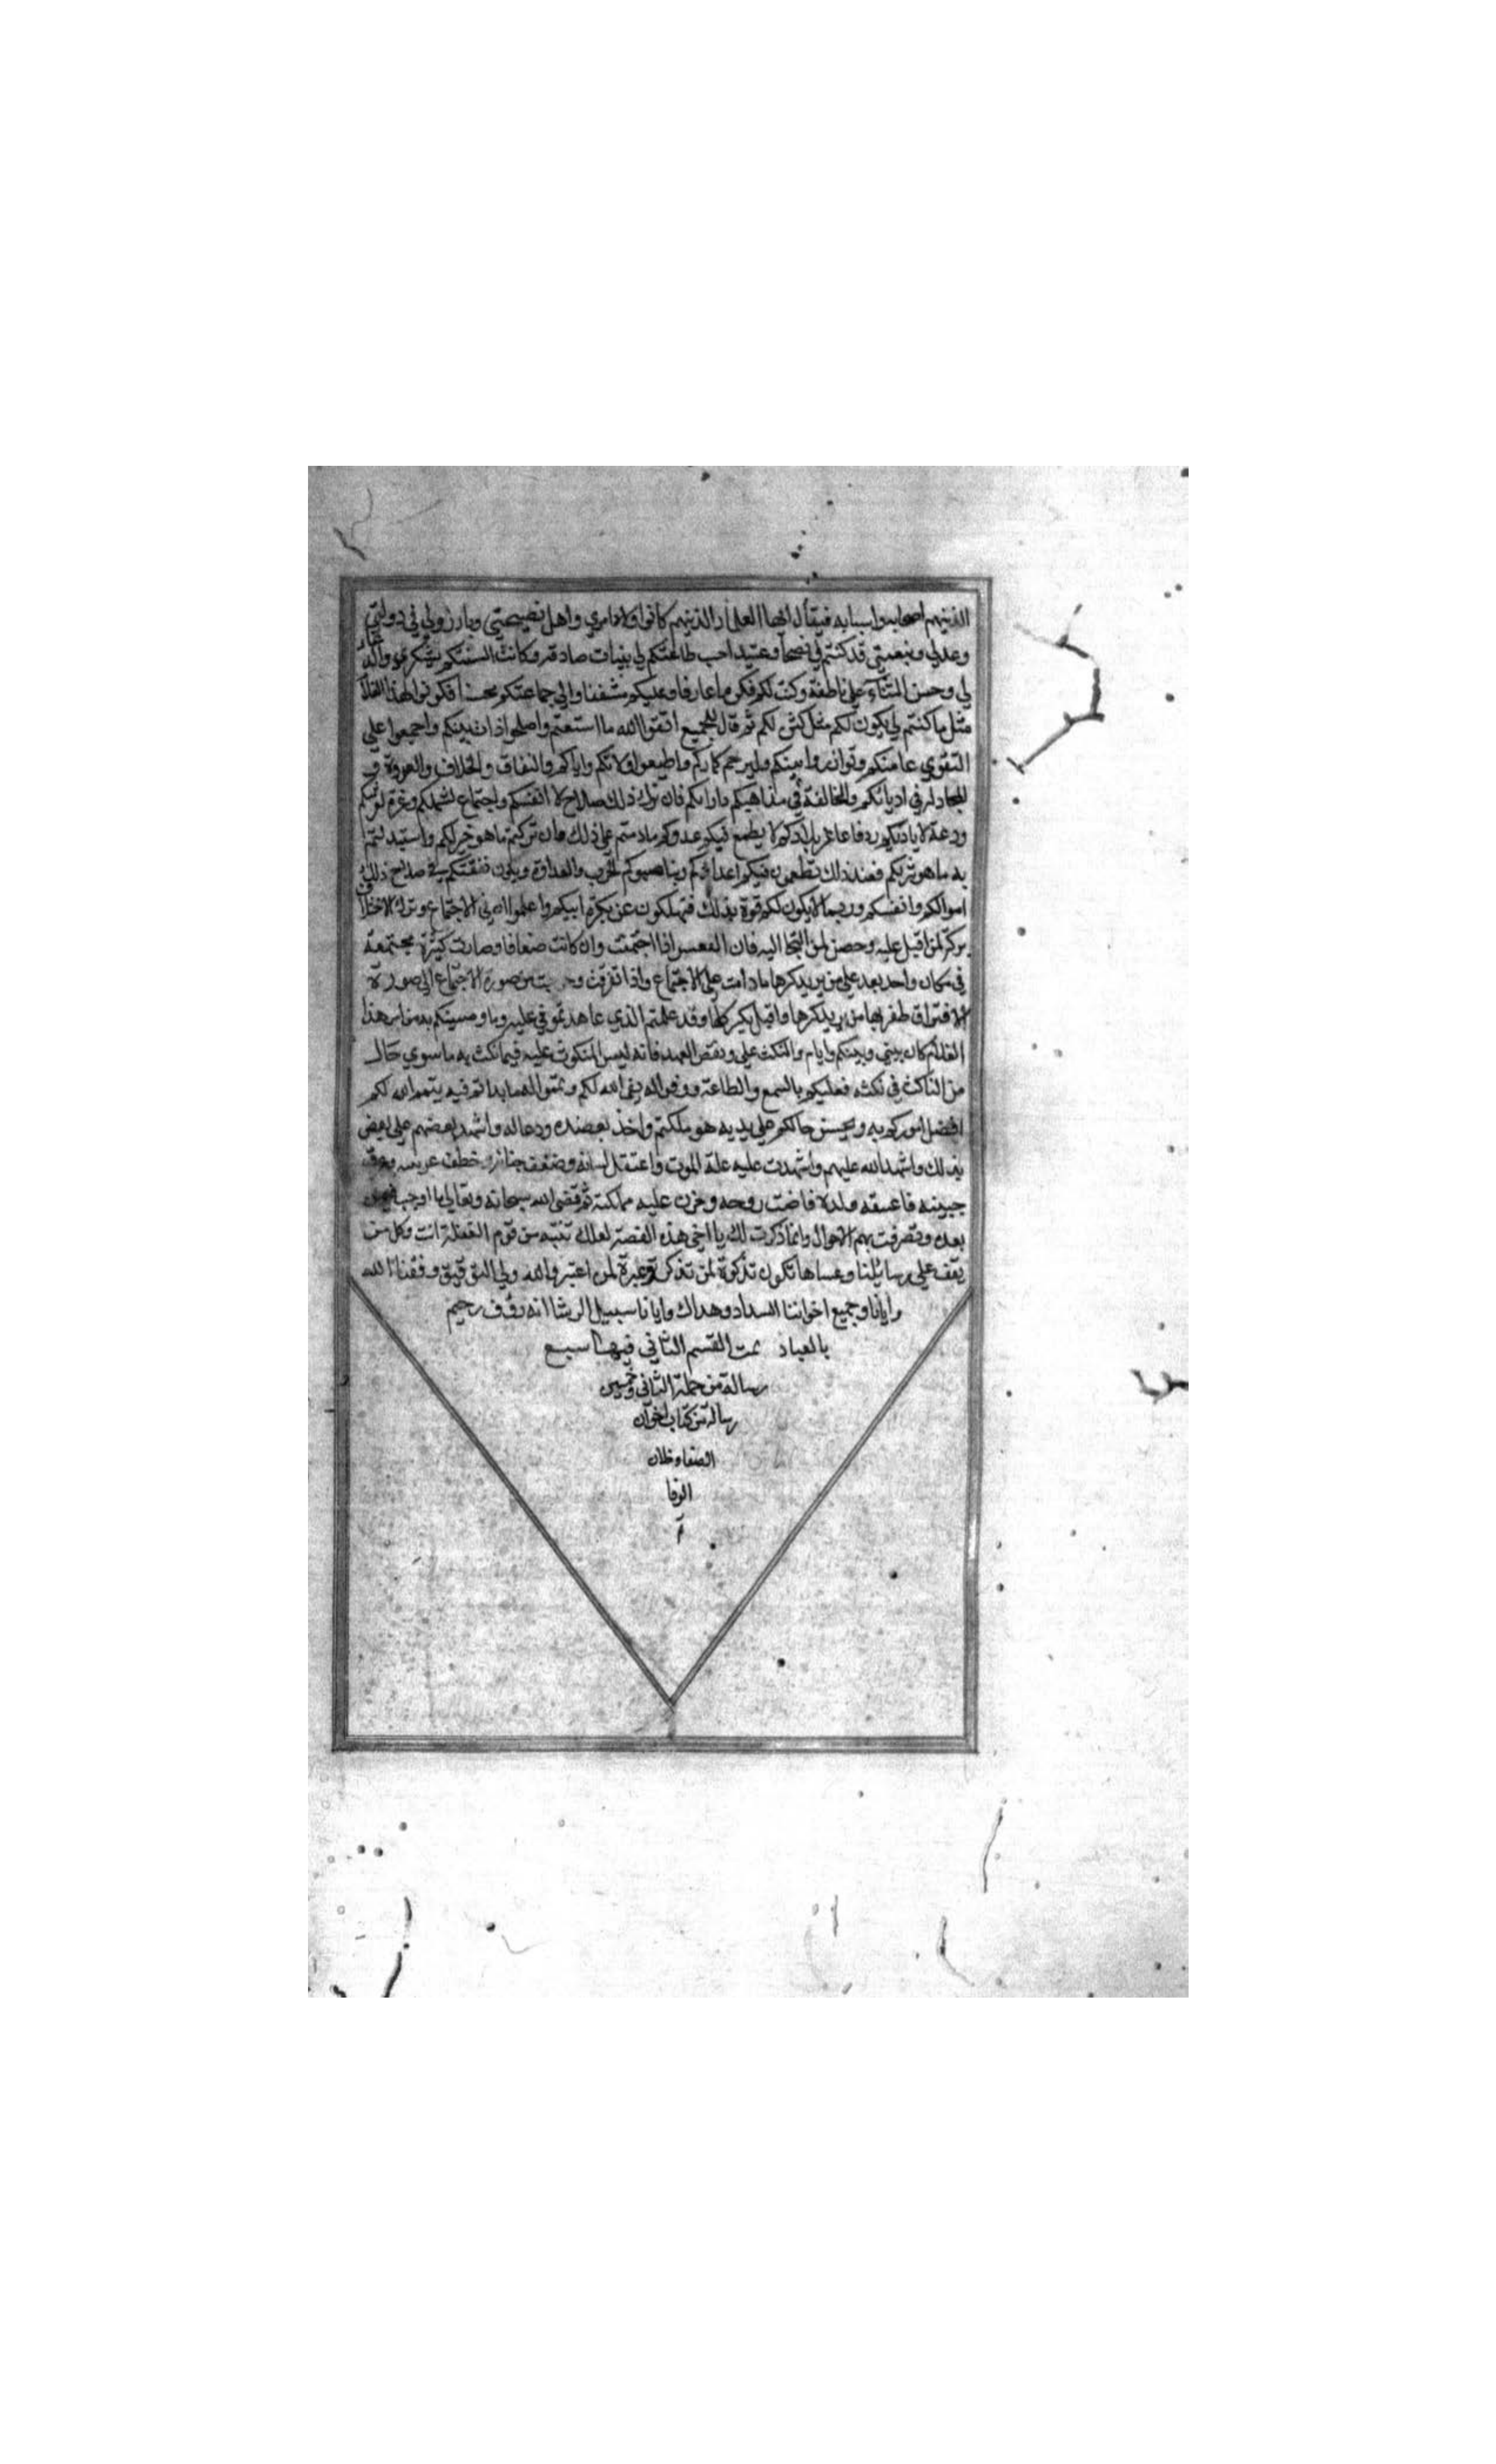 الذينهم اصحابه واسبابه فيقال ايها العلماء الذينهم كانوا ولاد امري واهل نصيحتي وبادروني في دولتي
وعدلي ونعمتي قد كنتم لي نصحا وعتيد احب طاعتكم لي بنيات صادقة وكانت السنتكم بشكري
لي وحسن الثناء على ناطقة وكنت لكم فكن ما عارفا وعليكم مشفقا والي جماعتكم محسنا فكونوا لهذا الغلام
مثل ما كنتم لي يكون لكم مثل كنت لكم ثم قال للجميع اتقوا الله ما استعتم واصلحوا ذات بينكم واجمعوا علي
التقوي عامتكم وتوازروا بينكم وليرحم كباركم واطيعوا ولاتكم واياكم والنفاق والخلاف والعروة و
المجادلة في اديانكم والمخالفة في مذاهبكم واراءكم فان ترك ذلك صلاح لا انفسكم واجتماع لشملكم وعزة لنفوسكم
ودعة لابدانكم ودفاعا عن بلادكم لا يطمع فيكم عدوكم ما دمتم علي ذلك فان تركتم ما هو خير لكم واستبدلتم
به ما هو شر بكم فعند ذلك تطعمون فيكم اعداؤكم ويناصبوكم الحرب والعداوة ويكون نفقتكم في صلاح ذلك
اموالكم وانفسكم وربما لا يكون لكم قوة بذلك فتهلكون عن بكرة ابيكم واعلموا ان في الاجتماع وترك الاختلاف
بركة لمن اقبل عليه وحصن لمن التجا اليه فان اذا اجتمعت وان كانت ضعافا وصارت كثيرة مجتمعة
في مكان واحد بعد علي من يريد كرها ما دامت علي الاجتماع واذا تفرقت من صورة الاجتماع الي صورة
الافتراق ظفر بها من يريد كرها واقبل يكر كلها وقد علمتم الذي عاهدتموني عليه وما وصيتكم به من امر هذا
الغلام كان بيني وبينكم وايام والنكث علي ونقض العهد فانه ليس المنكوث عليه فيما نكث به ما سوي حال
من الناكث في نكثه فعليكم بالسمع والطاعة ووفوا له يفي الله لكم وتمموا له ما بداتم فيه يتمم الله لكم
افضل اموركم به ويحسن حالكم علي يديه هو ملكتم واخذ بعضده ودعا له واشهد بعضهم علي بعض
بذلك واشهد الله عليهم واشتدت عليه علة الموت واعتقل لسانه وضعف وخطف وعرق
جبينه فاعنقه ولده فاضت روحه وحزن عليه مملكته ثم قضي الله سبحانه وتعالي بما اوجب فيمن
بعده وتصرفت بهم الاحوال وانما ذكرت لك يا اخي هذه القصة لعلك تنتبه من نوم الغفلة انت وكل من
يقف علي رسائلنا وعساها تكون تذكرة لمن تذكر وعبرة لمن اعتبر والله ولي التوفيق وفقنا الله
وايانا وجميع اخواننا السداد وهداك وايانا سبيل الرشا انه روف رحيم
بالعباد تمت القسم الثاني فيها سبع
رسالة من جملة الثاني وخمسين
رسالة من كتاب اخوان
الصفا وخلان
الوفا
م